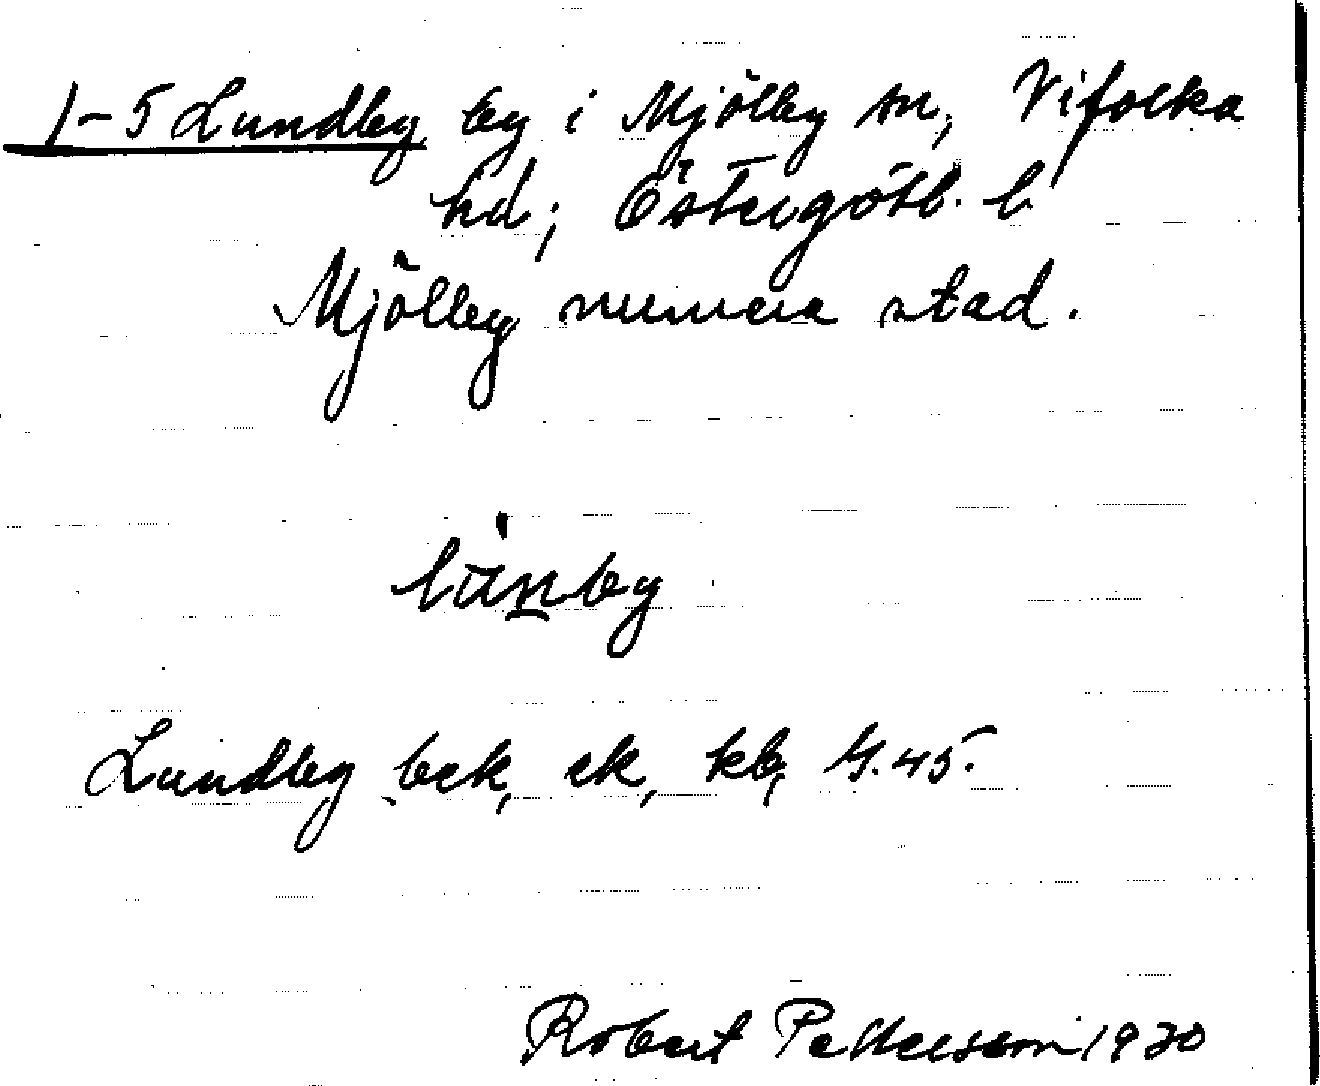 1-5 Lundby by i Mjölby sn, Vifolka
hd, Östergötl. l.
Mjölby numera stad.
lünby
Lundby bek, ek, kb, G.45.
Robert Pettersson 1930